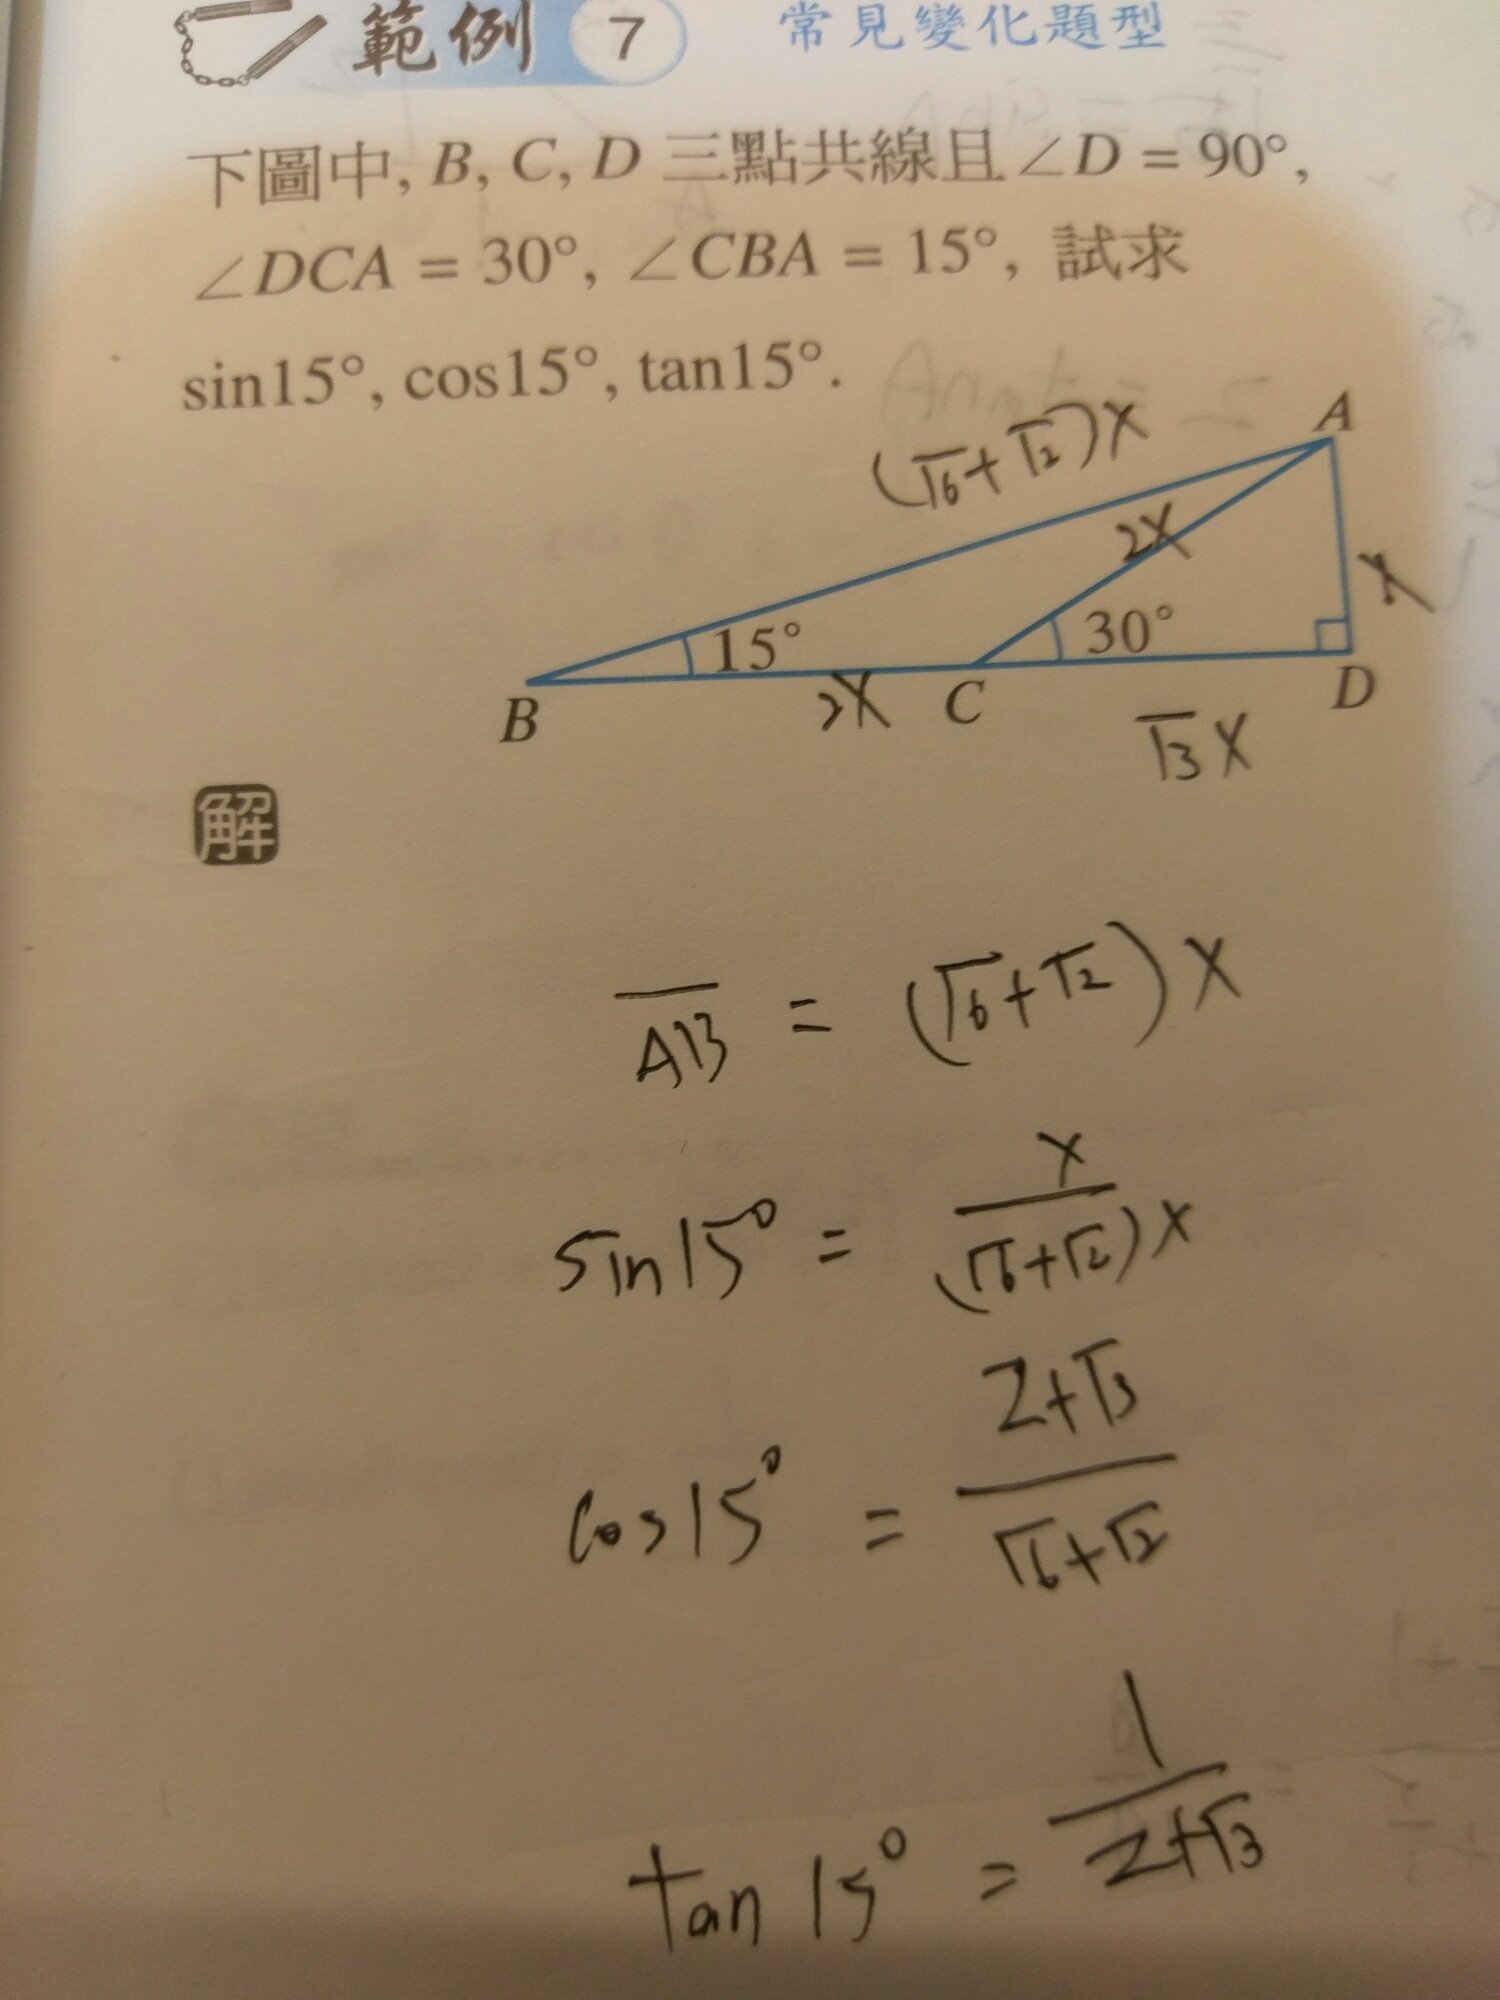 範例 7 常見變化題型
下圖中, B, C, D 三點共線且∠D = 90°,
∠DCA = 30°, ∠CBA = 15°, 試求
sin15°, cos15°, tan15°.
A
(√6+√2)X
2X
X
15°
30°
B
2X
C
D
√3X
解
AB = (√6+√2)X
sin15° = X/(√6+√2)X
cos15° = 2+√3/√6+√2
tan15° = 1/2+√3